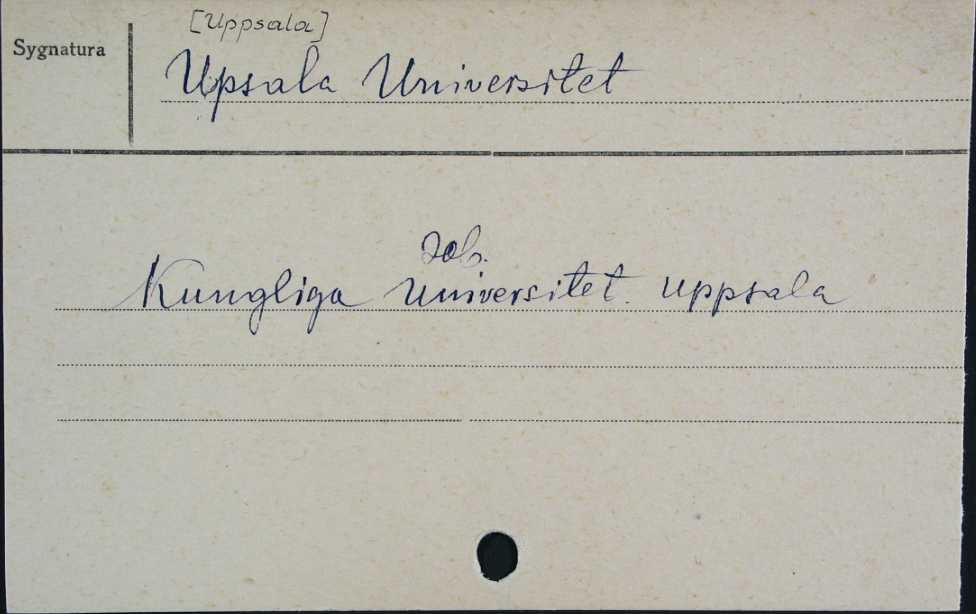 [Uppsala]
Sygnatura
Upsala Universitet
Zob.
Kungliga Universitet. Uppsala